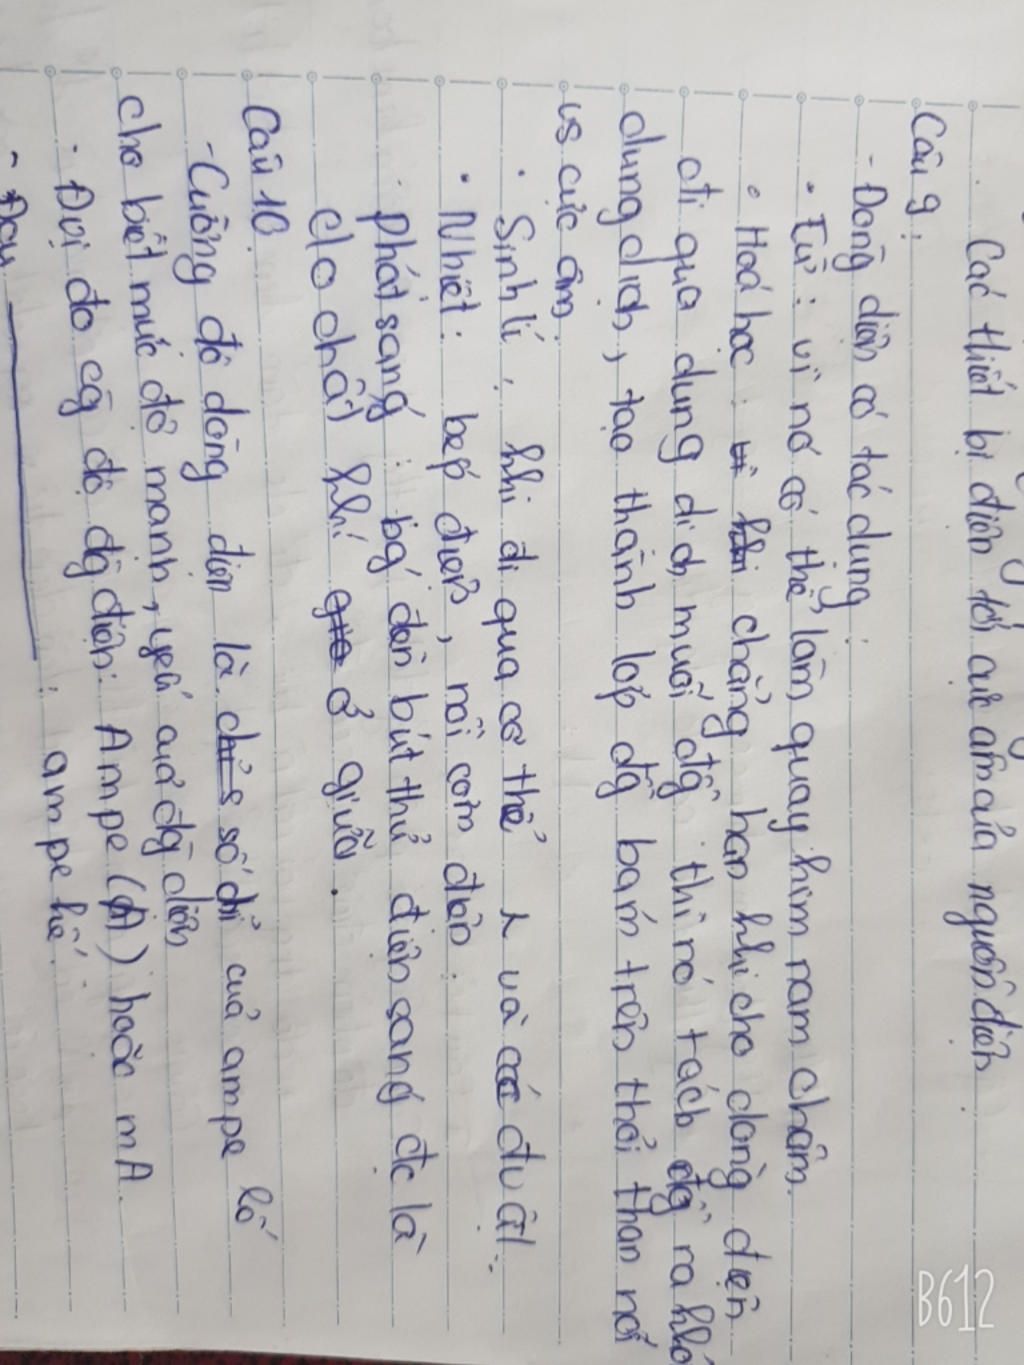 các thiết bị điện tới cực âm của nguồn điện.
Câu 9:
- Dòng điện có tác dụng:
• Từ: vì nó có thể làm quay kim nam châm.
• Hoá học: chẳng hạn khi cho dòng điện
đi qua dung dịch muối đồng thì nó tách đồng ra khỏi
dung dịch, tạo thành lớp đồng bám trên thỏi than nối
vs cực âm.
• Sinh lí: khi đi qua cơ thể và các
• Nhiệt: bếp điện, nồi cơm điện.
• phát sáng: bóng đèn bút thử điện sáng đc là
do chất khí ở giữa.
Câu 10
- Cường độ dòng điện là số chỉ của ampe kế
cho biết mức độ mạnh, yếu của dg điện
• Đvị đo cg độ dg điện: Ampe (A) hoặc mA.
: ampe kế.
B612